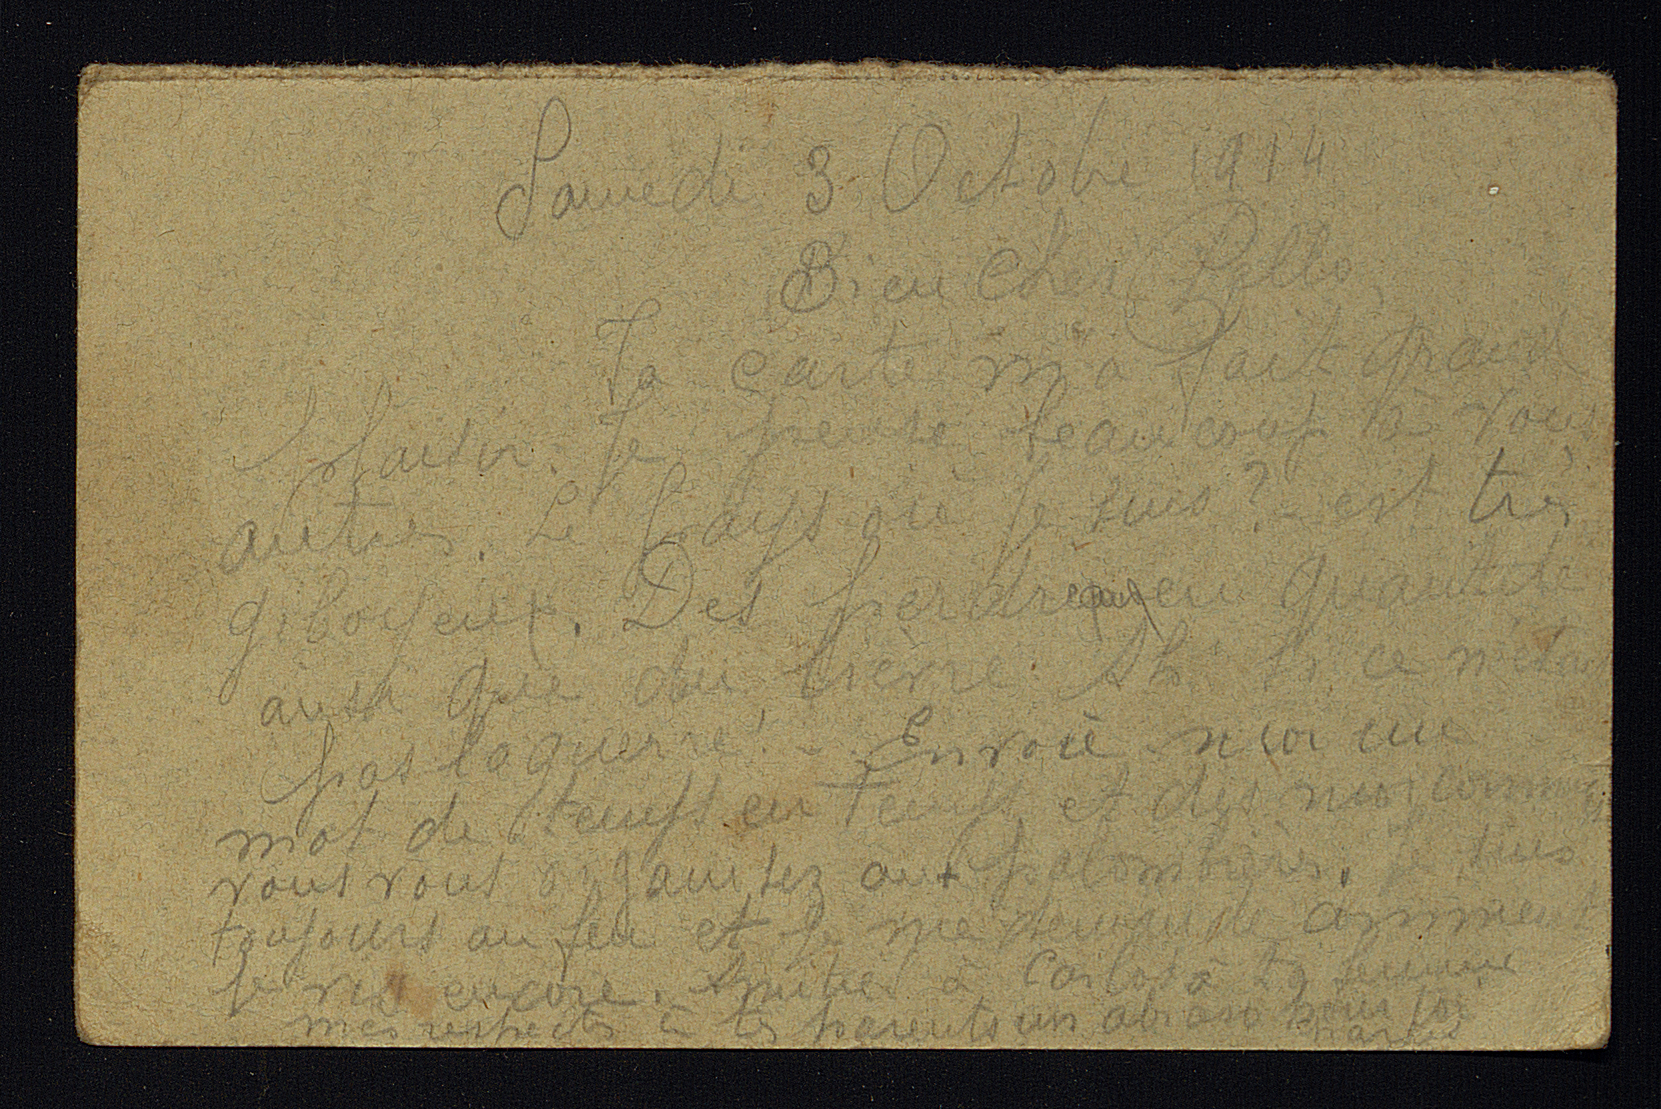 Samedi 3 Octobre 1914
Bien cher Pello,
Ta carte m'a fait grand
plaisir. Je pense beaucoup à vous
autres. Le pays où je suis ? est très
giboyeux. Des perdreaux en quantité
ausi que du lièvre. Ah! si ce n'était
pas la guerre! - Envoie moi un
mot de temps en temps et dis moi comme
vous vous organisez aux palombières. Je suis
toujours au feu et je me demande comment
je vis encore. Amitiés à Carlos à ta femme
mes respects à tes parents un abraso pour toi